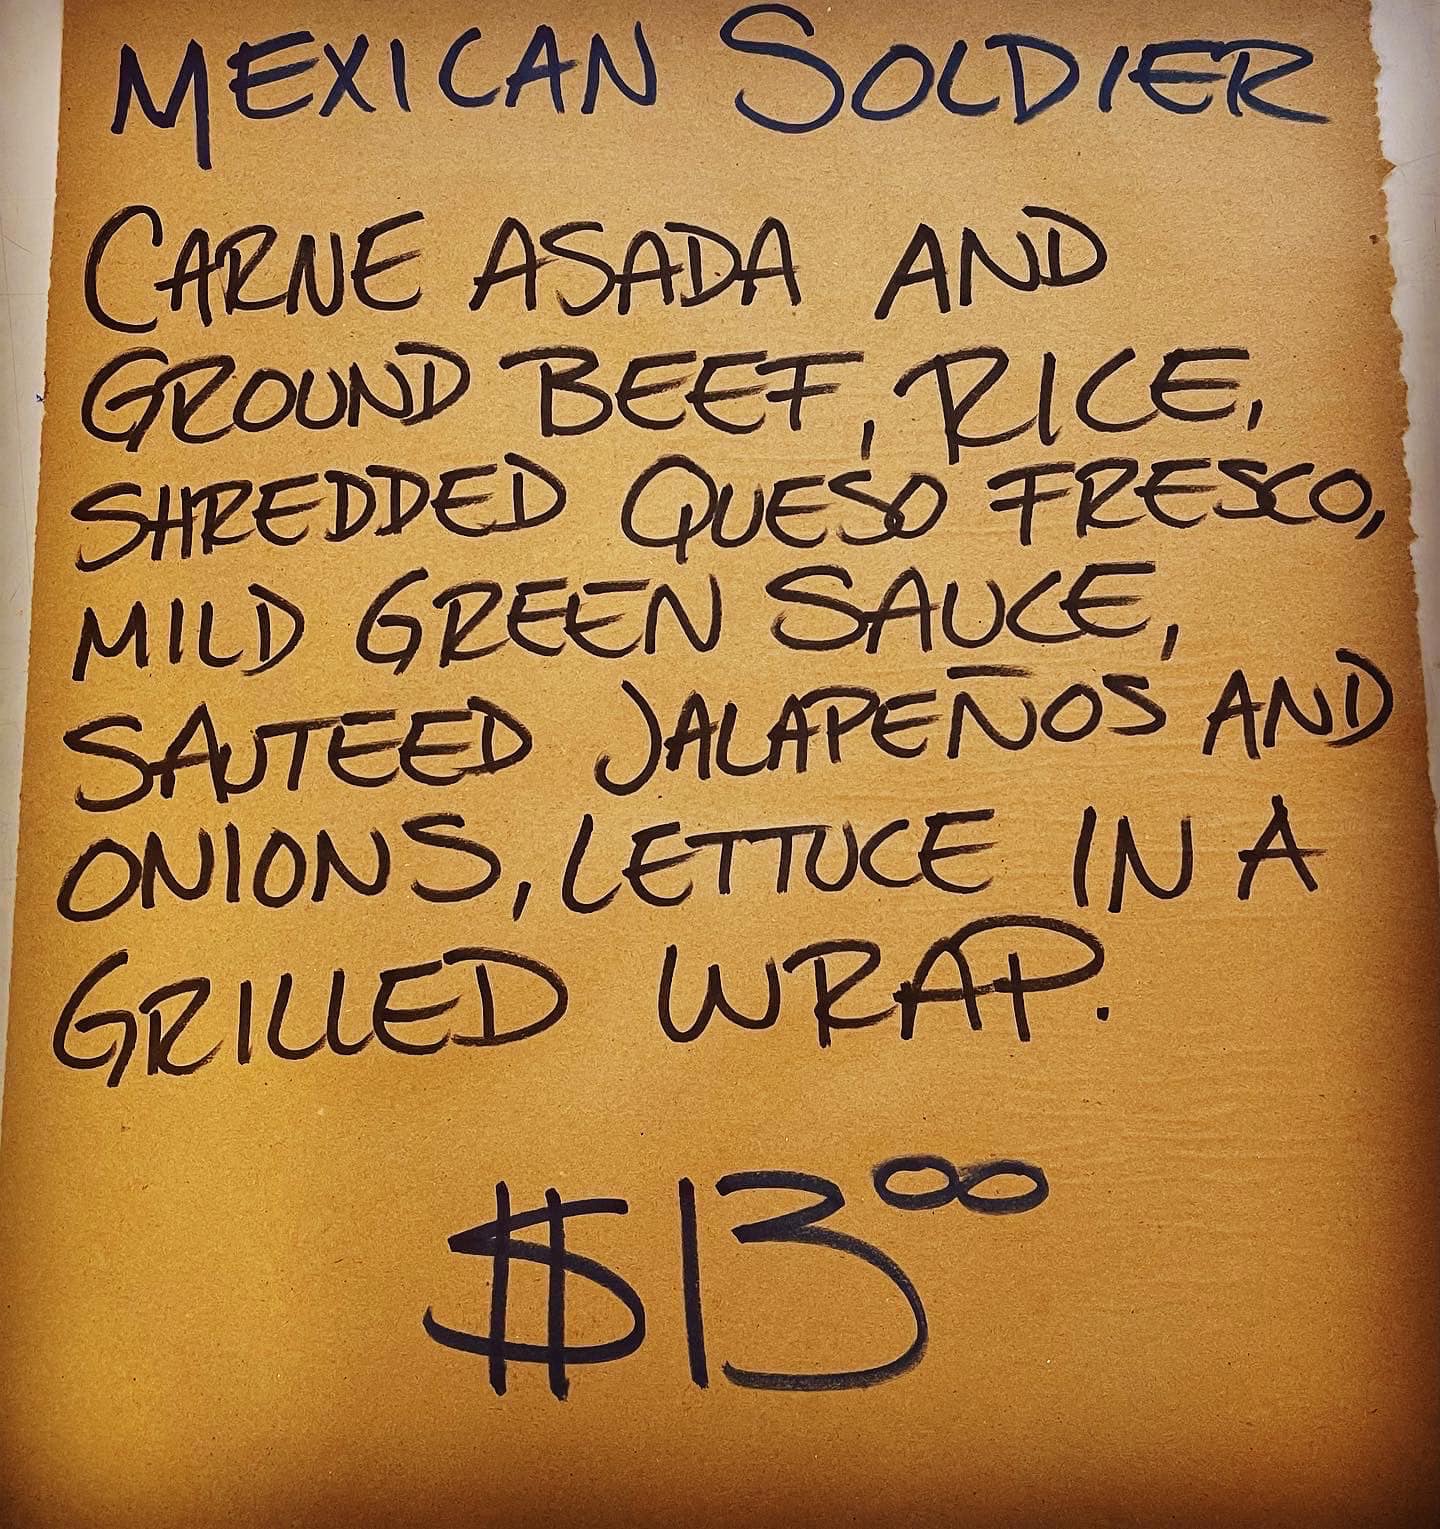 MEXICAN SOLDIER
CARNE ASADA AND
GROUND BEEF, RICE,
SHREDDED QUESO FRESCO,
MILD GREEN SAUCE,
SAUTEED JALAPEÑOS AND
ONIONS, LETTUCE IN A
GRILLED WRAP.
$13⁰⁰